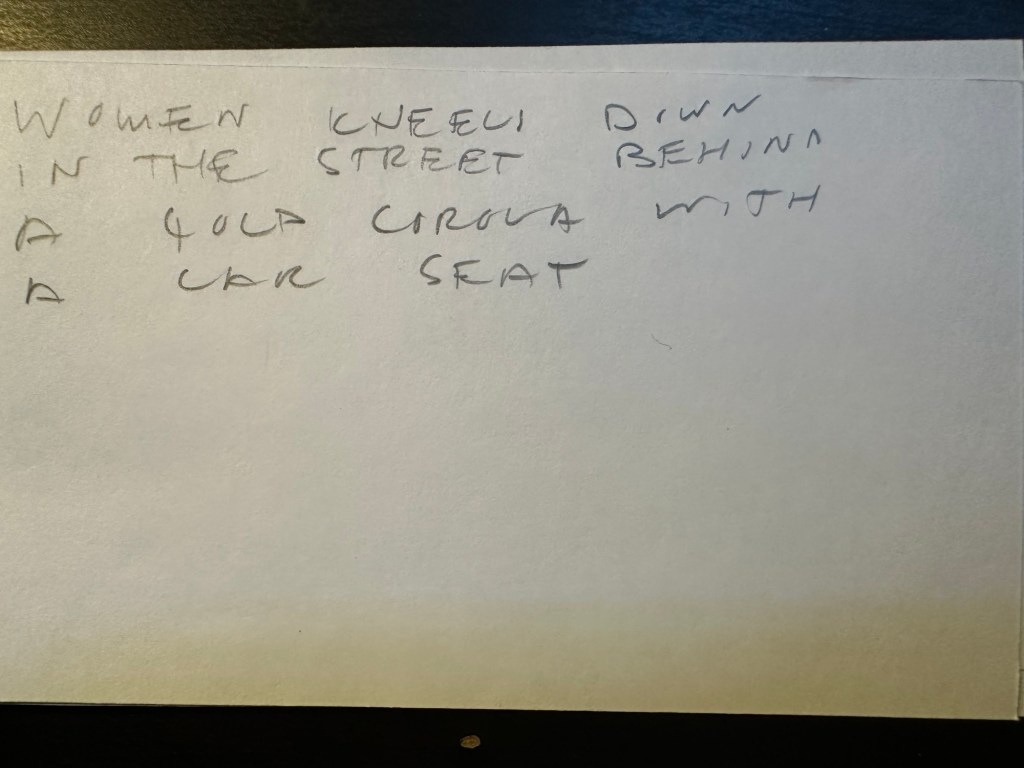 WOMEN KNEELI DIWN
IN THE STREET BEHIND
A GOLD COROLA WITH
A CAR SEAT